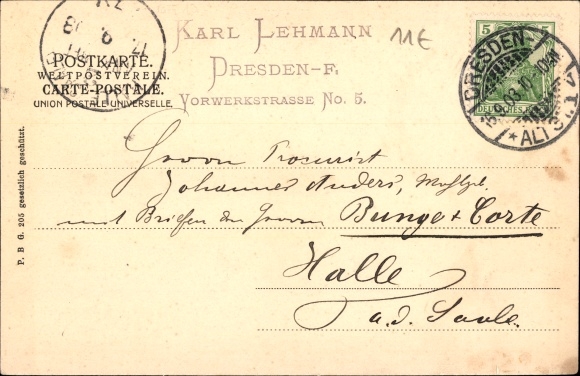 KARL LEHMANN
DRESDEN-F,
VORWERKSTRASSE No. 5.
11E
POSTKARTE.
WELTPOSTVEREIN.
CARTE-POSTALE.
UNION POSTALE UNIVERSELLE.
5
DEUTSCHES
DRESDEN-
ALTST.
Herrn Procurist
Johannes Anders,
mit Briefen der Herren Bunge & Corte
Halle
a. d. Saale.
P. B G. 205 gesetzlich geschützt.